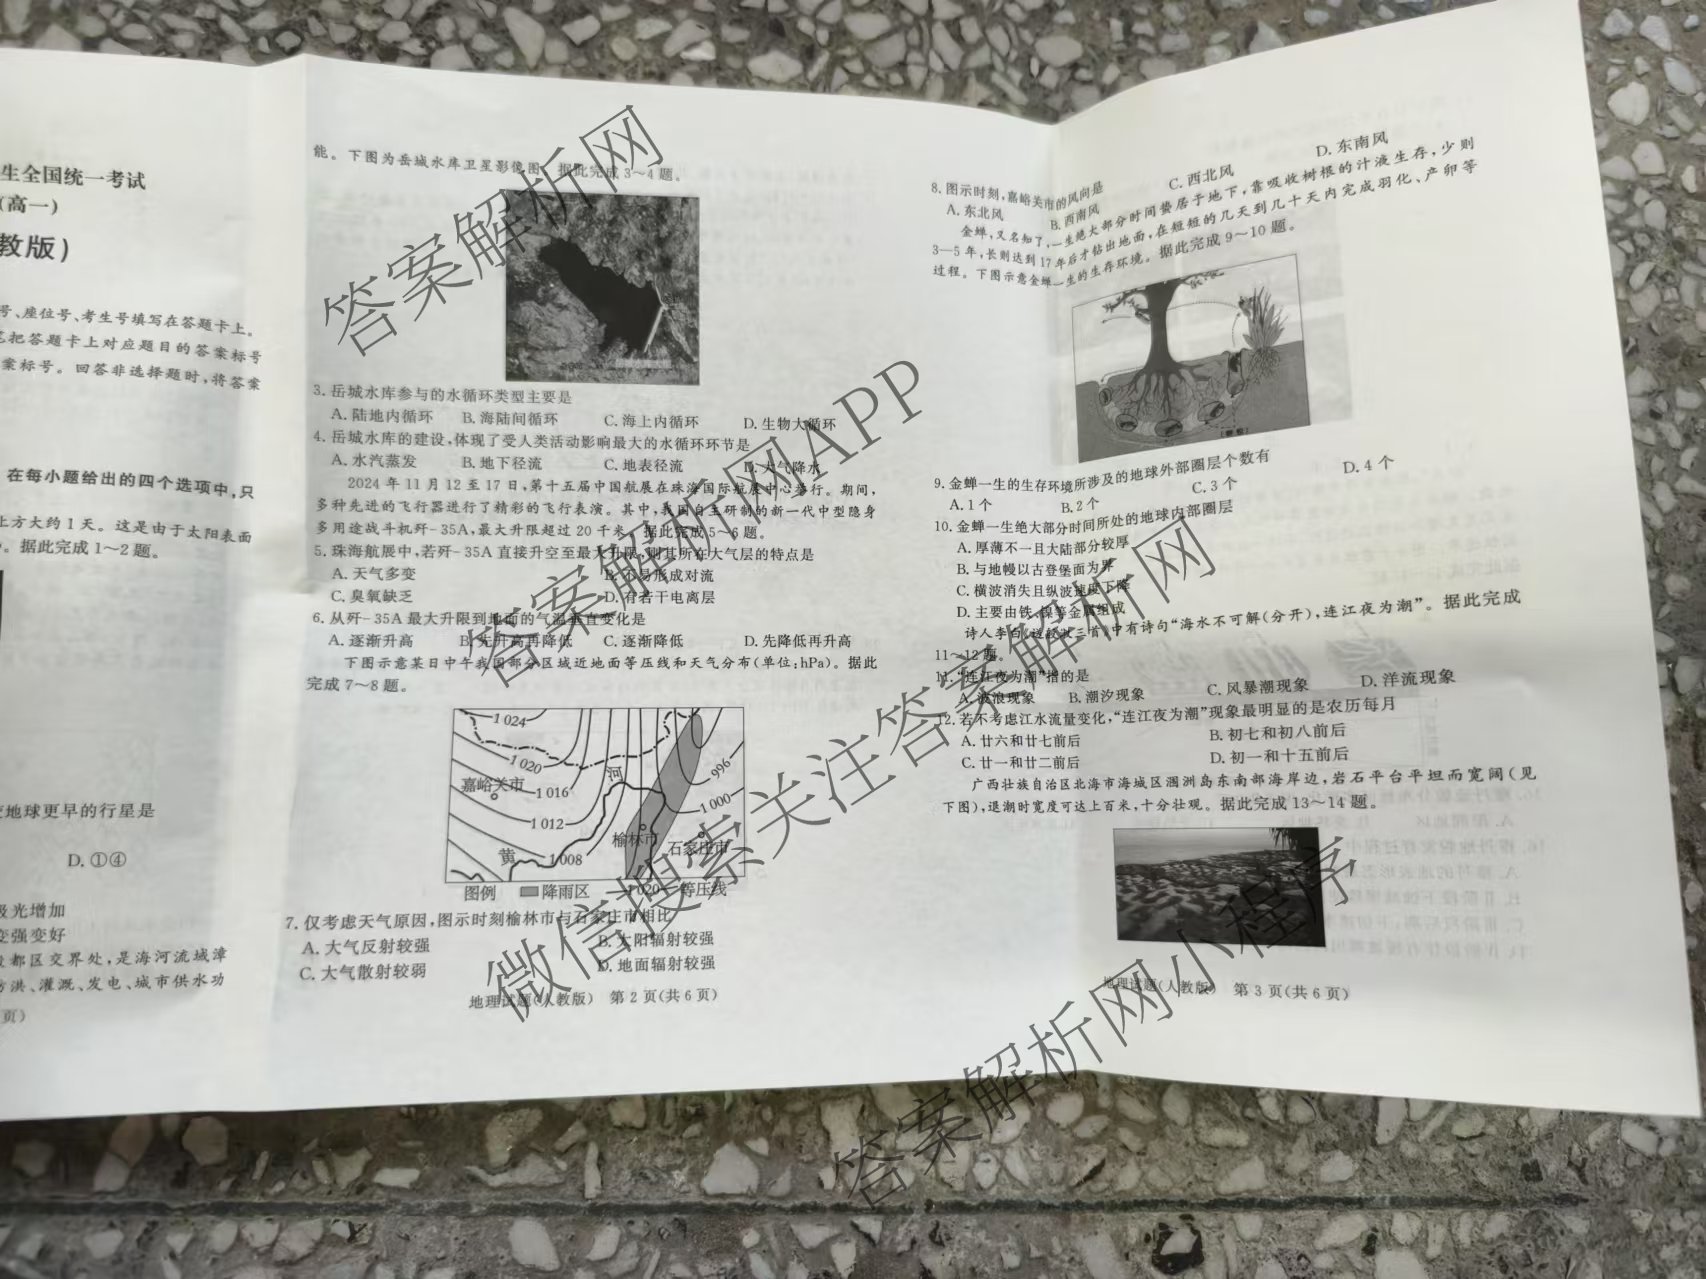 生全国统一考试
(高一)
教版)
号、座位号、考生号填写在答题卡上。
把答题卡上对应题目的答案标号
案标号。回答非选择题时,将答案
在每小题给出的四个选项中,只
上方大约1天。这是由于太阳表面
。据此完成1～2题。
地球更早的行星是
D.①④
极光增加
变强变好
都区交界处,是海河流域漳
防洪、灌溉、发电、城市供水功
页)
能。下图为岳城水库卫星影像图。据此完成3～4题。
3.岳城水库参与的水循环类型主要是
A.陆地内循环 B.海陆间循环 C.海上内循环 D.生物大循环
4.岳城水库的建设,体现了受人类活动影响最大的水循环环节是
A.水汽蒸发 B.地下径流 C.地表径流 D.大气降水
2024年11月12至17日,第十五届中国航展在珠海国际航展中心举行。期间,
多种先进的飞行器进行了精彩的飞行表演。其中,我国自主研制的新一代中型隐身
多用途战斗机歼-35A,最大升限超过20千米。据此完成5～6题。
5.珠海航展中,若歼-35A直接升空至最大升限,则其所在大气层的特点是
A.天气多变 B.不易形成对流
C.臭氧缺乏 D.有若干电离层
6.从歼-35A最大升限到地面的气温垂直变化是
A.逐渐升高 B.先升高再降低 C.逐渐降低 D.先降低再升高
下图示意某日中午我国部分区域近地面等压线和天气分布(单位:hPa)。据此
完成7～8题。
1 024
1 020
嘉峪关市
1 016
河
996
1 000
1 012
榆林市
石家庄市
黄
1 008
图例 降雨区 1 020 等压线
7.仅考虑天气原因,图示时刻榆林市与石家庄市相比
A.大气反射较强 B.太阳辐射较强
C.大气散射较弱 D.地面辐射较强
地理试题(人教版) 第2页(共6页)
8.图示时刻,嘉峪关市的风向是
A.东北风 B.西南风 C.西北风 D.东南风
金蝉,又名知了,一生绝大部分时间蛰居于地下,靠吸收树根的汁液生存,少则
3—5年,长则达到17年后才钻出地面,在短短的几天到几十天内完成羽化、产卵等
过程。下图示意金蝉一生的生存环境。据此完成9～10题。
9.金蝉一生的生存环境所涉及的地球外部圈层个数有
A.1个 B.2个 C.3个 D.4个
10.金蝉一生绝大部分时间所处的地球内部圈层
A.厚薄不一且大陆部分较厚
B.与地幔以古登堡面为界
C.横波消失且纵波速度下降
D.主要由铁、镍等金属组成
诗人李白《送殷淑三首》中有诗句“海水不可解(分开),连江夜为潮”。据此完成
11～12题。
11.“连江夜为潮”指的是
A.波浪现象 B.潮汐现象 C.风暴潮现象 D.洋流现象
12.若不考虑江水流量变化,“连江夜为潮”现象最明显的是农历每月
A.廿六和廿七前后 B.初七和初八前后
C.廿一和廿二前后 D.初一和十五前后
广西壮族自治区北海市海城区涠洲岛东南部海岸边,岩石平台平坦而宽阔(见
下图),退潮时宽度可达上百米,十分壮观。据此完成13～14题。
地理试题(人教版) 第3页(共6页)
答案解析网
答案解析网APP
微信搜索关注答案解析网
答案解析网小程序